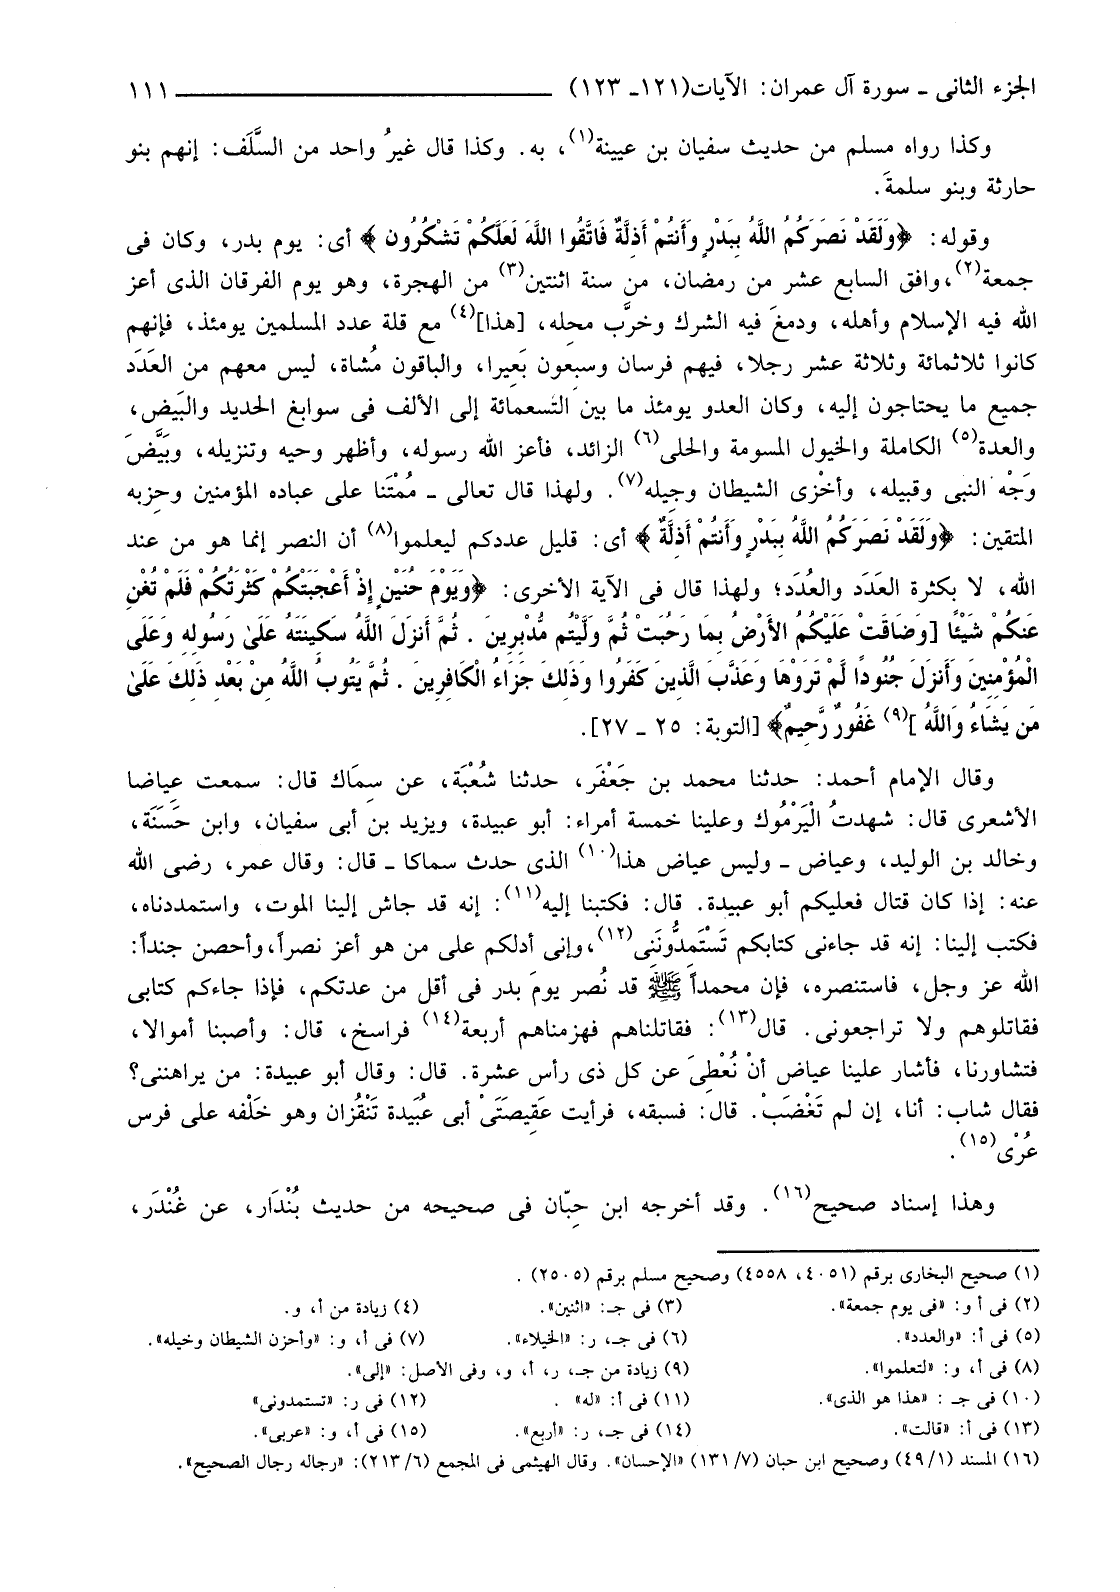 الجزء الثانى ـ سورة آل عمران: الآيات(١٢١ـ ١٢٣) ١١١
وكذا رواه مسلم من حديث سفيان بن عيينة(١)، به. وكذا قال غيرُ واحد من السَّلَف: إنهم بنو
حارثة وبنو سلمةَ.
وقوله: ﴿وَلَقَدْ نَصَرَكُمُ اللَّهُ بِبَدْرٍ وَأَنتُمْ أَذِلَّةٌ فَاتَّقُوا اللَّهَ لَعَلَّكُمْ تَشْكُرُون ﴾ أى: يوم بدر، وكان فى
جمعة(٢)،وافق السابع عشر من رمضان، من سنة اثنتين(٣) من الهجرة، وهو يوم الفرقان الذى أعز
الله فيه الإسلام وأهله، ودمغَ فيه الشرك وخرَّب محِله، [هذا](٤) مع قلة عدد المسلمين يومئذ، فإنهم
كانوا ثلاثمائة وثلاثة عشر رجلا، فيهم فرسان وسبعون بَعِيرا، والباقون مُشاة، ليس معهم من العَدَد
جميع ما يحتاجون إليه، وكان العدو يومئذ ما بين التسعمائة إلى الألف فى سوابغ الحديد والبَيض،
والعدة(٥) الكاملة والخيول المسومة والحلى(٦) الزائد، فأعز الله رسوله، وأظهر وحيه وتنزيله، وبَيَّضَ
وَجْه النبى وقبيله، وأخْزى الشيطان وجيله(٧). ولهذا قال تعالى ـ مُمْتَنا على عباده المؤمنين وحزبه
المتقين: ﴿وَلَقَدْ نَصَرَكُمُ اللَّهُ بِبَدْرٍ وَأَنتُمْ أَذِلَّةٌ ﴾ أى: قليل عددكم ليعلموا(٨) أن النصر إنما هو من عند
الله، لا بكثرة العَدَد والعُدَد؛ ولهذا قال فى الآية الأخرى: ﴿وَيَوْمَ حُنَيْنٍ إِذْ أَعْجَبَتْكُمْ كَثْرَتُكُمْ فَلَمْ تُغْنِ
عَنكُمْ شَيْئًا [وَضَاقَتْ عَلَيْكُمُ الأَرْضُ بِمَا رَحُبَتْ ثُمَّ وَلَّيْتُم مُّدْبِرِينَ . ثُمَّ أَنزَلَ اللَّهُ سَكِينَتَهُ عَلَىٰ رَسُولِهِ وَعَلَى
الْمُؤْمِنِينَ وَأَنزَلَ جُنُودًا لَّمْ تَرَوْهَا وَعَذَّبَ الَّذِينَ كَفَرُوا وَذَلِكَ جَزَاءُ الْكَافِرِينَ . ثُمَّ يَتُوبُ اللَّهُ مِنْ بَعْدِ ذَلِكَ عَلَىٰ
مَن يَشَاءُ وَاللَّهُ ](٩) غَفُورٌ رَّحِيمٌ﴾ [التوبة: ٢٥ ـ ٢٧].
وقال الإمام أحمد: حدثنا محمد بن جَعْفَر، حدثنا شُعْبَة، عن سِمَاك قال: سمعت عِياضا
الأشعرى قال: شهدتُ الْيَرْمُوك وعلينا خمسة أمراء: أبو عبيدة، ويزيد بن أبى سفيان، وابن حَسَنَة،
وخالد بن الوليد، وعياض ـ وليس عياض هذا(١٠) الذى حدث سماكا ـ قال: وقال عمر، رضى الله
عنه: إذا كان قتال فعليكم أبو عبيدة. قال: فكتبنا إليه(١١): إنه قد جاش إلينا الموت، واستمددناه،
فكتب إلينا: إنه قد جاءنى كتابكم تَسْتَمِدُّونَنى(١٢)،وإنى أدلكم على من هو أعز نصراً،وأحصن جنداً:
الله عز وجل، فاستنصره، فإن محمداً ﷺ قد نُصر يومَ بدر فى أقل من عدتكم، فإذا جاءكم كتابى
فقاتلوهم ولا تراجعونى. قال(١٣): فقاتلناهم فهزمناهم أربعة(١٤) فراسخ، قال: وأصبنا أموالا،
فتشاورنا، فأشار علينا عياض أنْ نُعْطِىَ عن كل ذى رأس عشرة. قال: وقال أبو عبيدة: من يراهننى؟
فقال شاب: أنا، إن لم تَغْضَبْ. قال: فسبقه، فرأيت عَقِيصَتَىْ أبى عُبَيدة تَنْقُزان وهو خَلْفه على فرس
عُرْى(١٥).
وهذا إسناد صحيح(١٦). وقد أخرجه ابن حِبّان فى صحيحه من حديث بُنْدَار، عن غُنْدَر،
(١) صحيح البخارى برقم (٤٠٥١، ٤٥٥٨) وصحيح مسلم برقم (٢٥٠٥) .
(٢) فى أ و: «فى يوم جمعة». (٣) فى جـ: «اثنين». (٤) زيادة من أ، و.
(٥) فى أ: «والعدد». (٦) فى جـ، ر: «الخيلاء». (٧) فى أ، و: «وأحزن الشيطان وخيله».
(٨) فى أ، و: «لتعلموا». (٩) زيادة من جـ، ر، أ، و، وفى الأصل: «إلى».
(١٠) فى جـ : «هذا هو الذى». (١١) فى أ: «له» . (١٢) فى ر: «تستمدونى»
(١٣) فى أ: «قالت». (١٤) فى جـ، ر: «أربع». (١٥) فى أ، و: «عربى».
(١٦) المسند (٤٩/١) وصحيح ابن حبان (١٣١/٧) «الإحسان». وقال الهيثمى فى المجمع (٢١٣/٦): «رجاله رجال الصحيح».